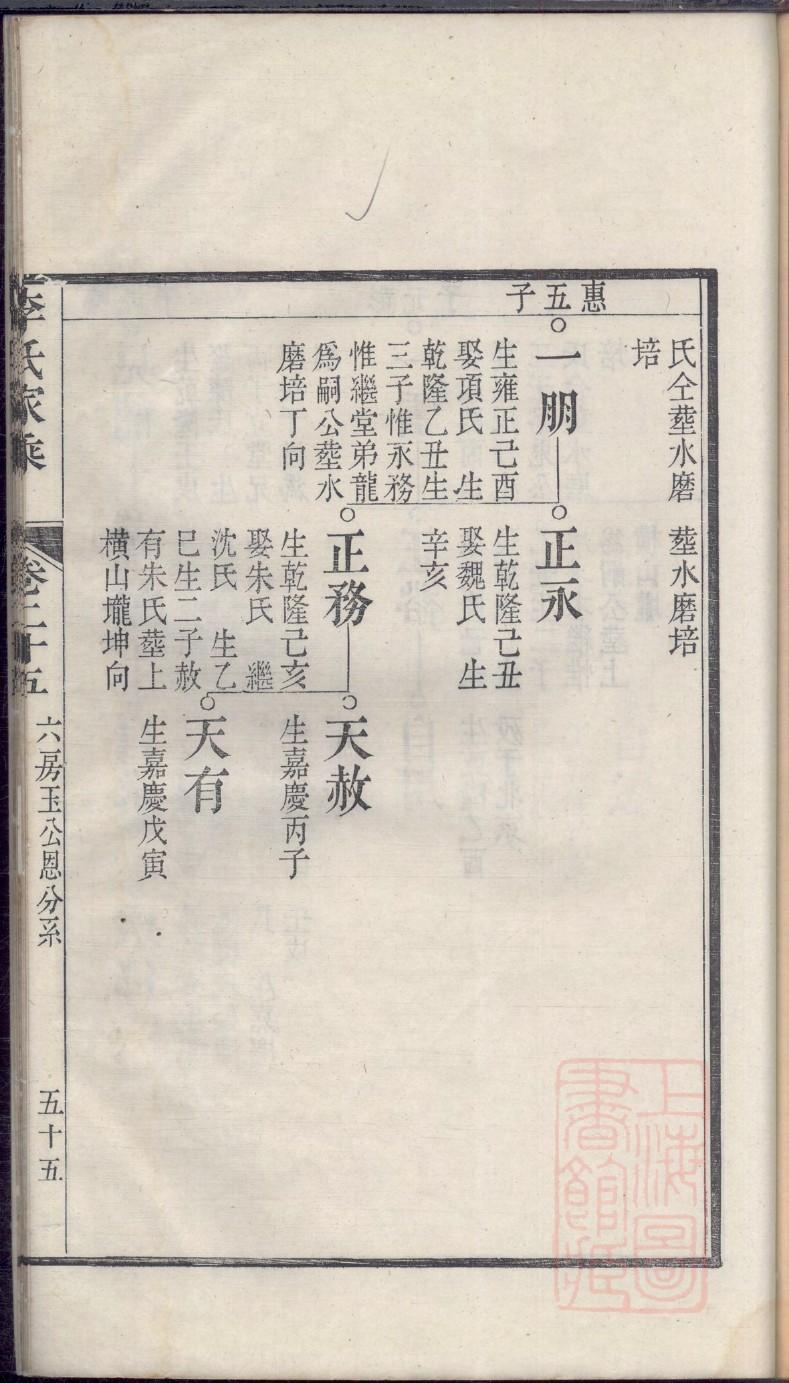 惠五子
氏仝塟水磨
培
塟水磨培
一朋
生雍正己酉
娶項氏 生
乾隆乙丑生
三子惟永務
惟繼堂弟龍
爲嗣公塟水
磨培丁向
正永
生乾隆己丑
娶魏氏 生
辛亥
正務
生乾隆己亥
娶朱氏 繼
沈氏 生乙
巳生二子赦
有朱氏塟上
橫山壠坤向
天赦
生嘉慶丙子
天有
生嘉慶戊寅
李氏家乘
卷二十五
六房玉公恩分系
五十五
上海圖
書館藏